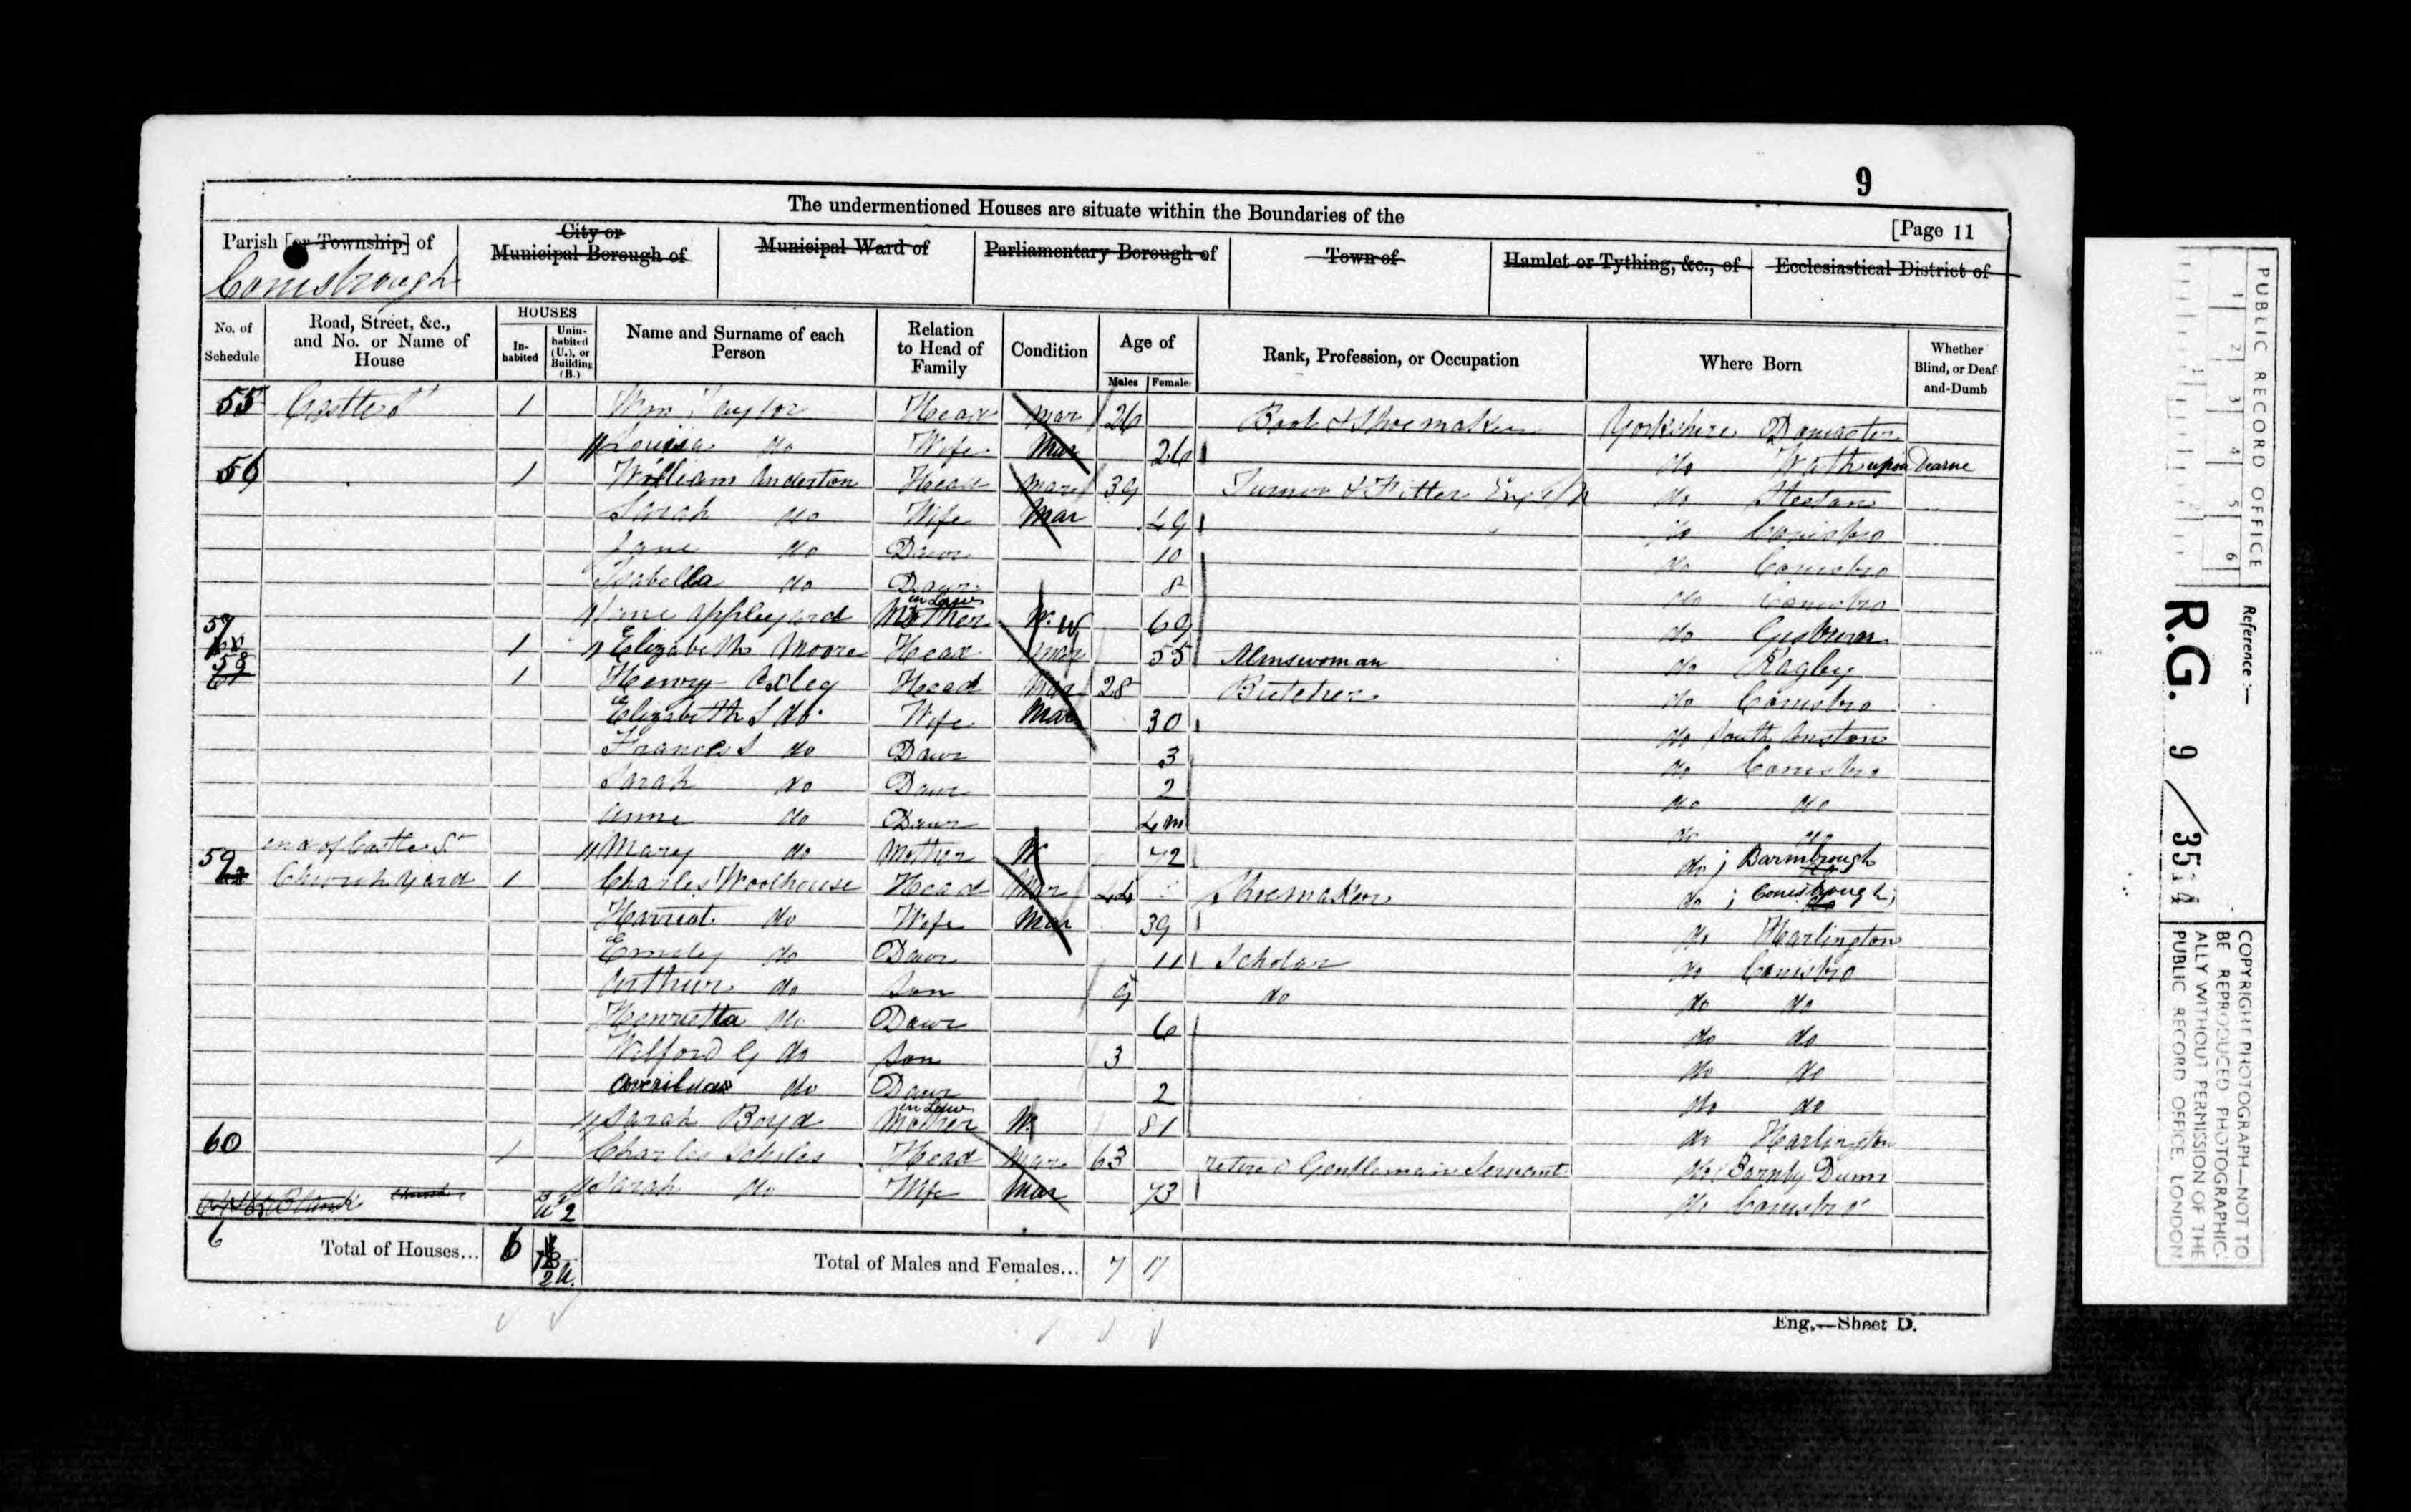 9
The undermentioned Houses are situate within the Boundaries of the
[Page 11
Parish [or Township] of
City or Municipal Borough of
Municipal Ward of
Parliamentary Borough of
Town of
Hamlet or Tything, &c., of
Ecclesiastical District of
Conisbrough
No. of Schedule
Road, Street, &c., and No. or Name of House
HOUSES
In-habited
Unin-habited (U.), or Building (B.)
Name and Surname of each Person
Relation to Head of Family
Condition
Age of
Males
Females
Rank, Profession, or Occupation
Where Born
Whether Blind, or Deaf-and-Dumb
55 Castle St 1 Wm Taylor Head Mar 26 Boot & Shoemaker Yorkshire Doncaster
Louisa do Wife Mar 26 do Wath upon Dearne
56 1 William Anderton Head Mar 39 Turner & Fitter do
Sarah do Wife Mar 49 do Conisbro
Jane do Daur 10 do Conisbro
Isabella do Daur 8 do Conisbro
Jane Appleyard Mother in Law W. 69 do
57 1 Elizabeth Moore Head Mar 55 Almswoman do
58 1 Henry Oxley Head Mar 28 Butcher do Conisbro
Elizabeth S do Wife Mar 30 do South Anston
Frances do Daur 3 do Conisbro
Sarah do Daur 2 do do
Anne do Daur 4m do do
end of Castle St Mary do Mother W 72 do Barmbrough
59 Church yard 1 Charles Woolhouse Head Mar 44 Shoemaker do Conisbrough
Harriot do Wife Mar 39 do Harlington
Emeley do Daur 11 Scholar do Conisbro
Arthur do Son 9 do do do
Henrietta do Daur 6 do do
Wilford G do Son 3 do do
do Daur 2 do do
Sarah Boyd Mother in Law W. 81 do Harlington
60 1 Charles Scholes Head Mar 63 retired Gentleman Servant do Barnby Dunn
Sarah do Wife Mar 73 do Conisbro
6 Total of Houses... 6 2 U. Total of Males and Females... 7 17
Eng.—Sheet D.
PUBLIC RECORD OFFICE
1 2 3 4 5 6
Reference :—
R.G. 9 / 3514
COPYRIGHT PHOTOGRAPH—NOT TO BE REPRODUCED PHOTOGRAPHICALLY WITHOUT PERMISSION OF THE PUBLIC RECORD OFFICE, LONDON